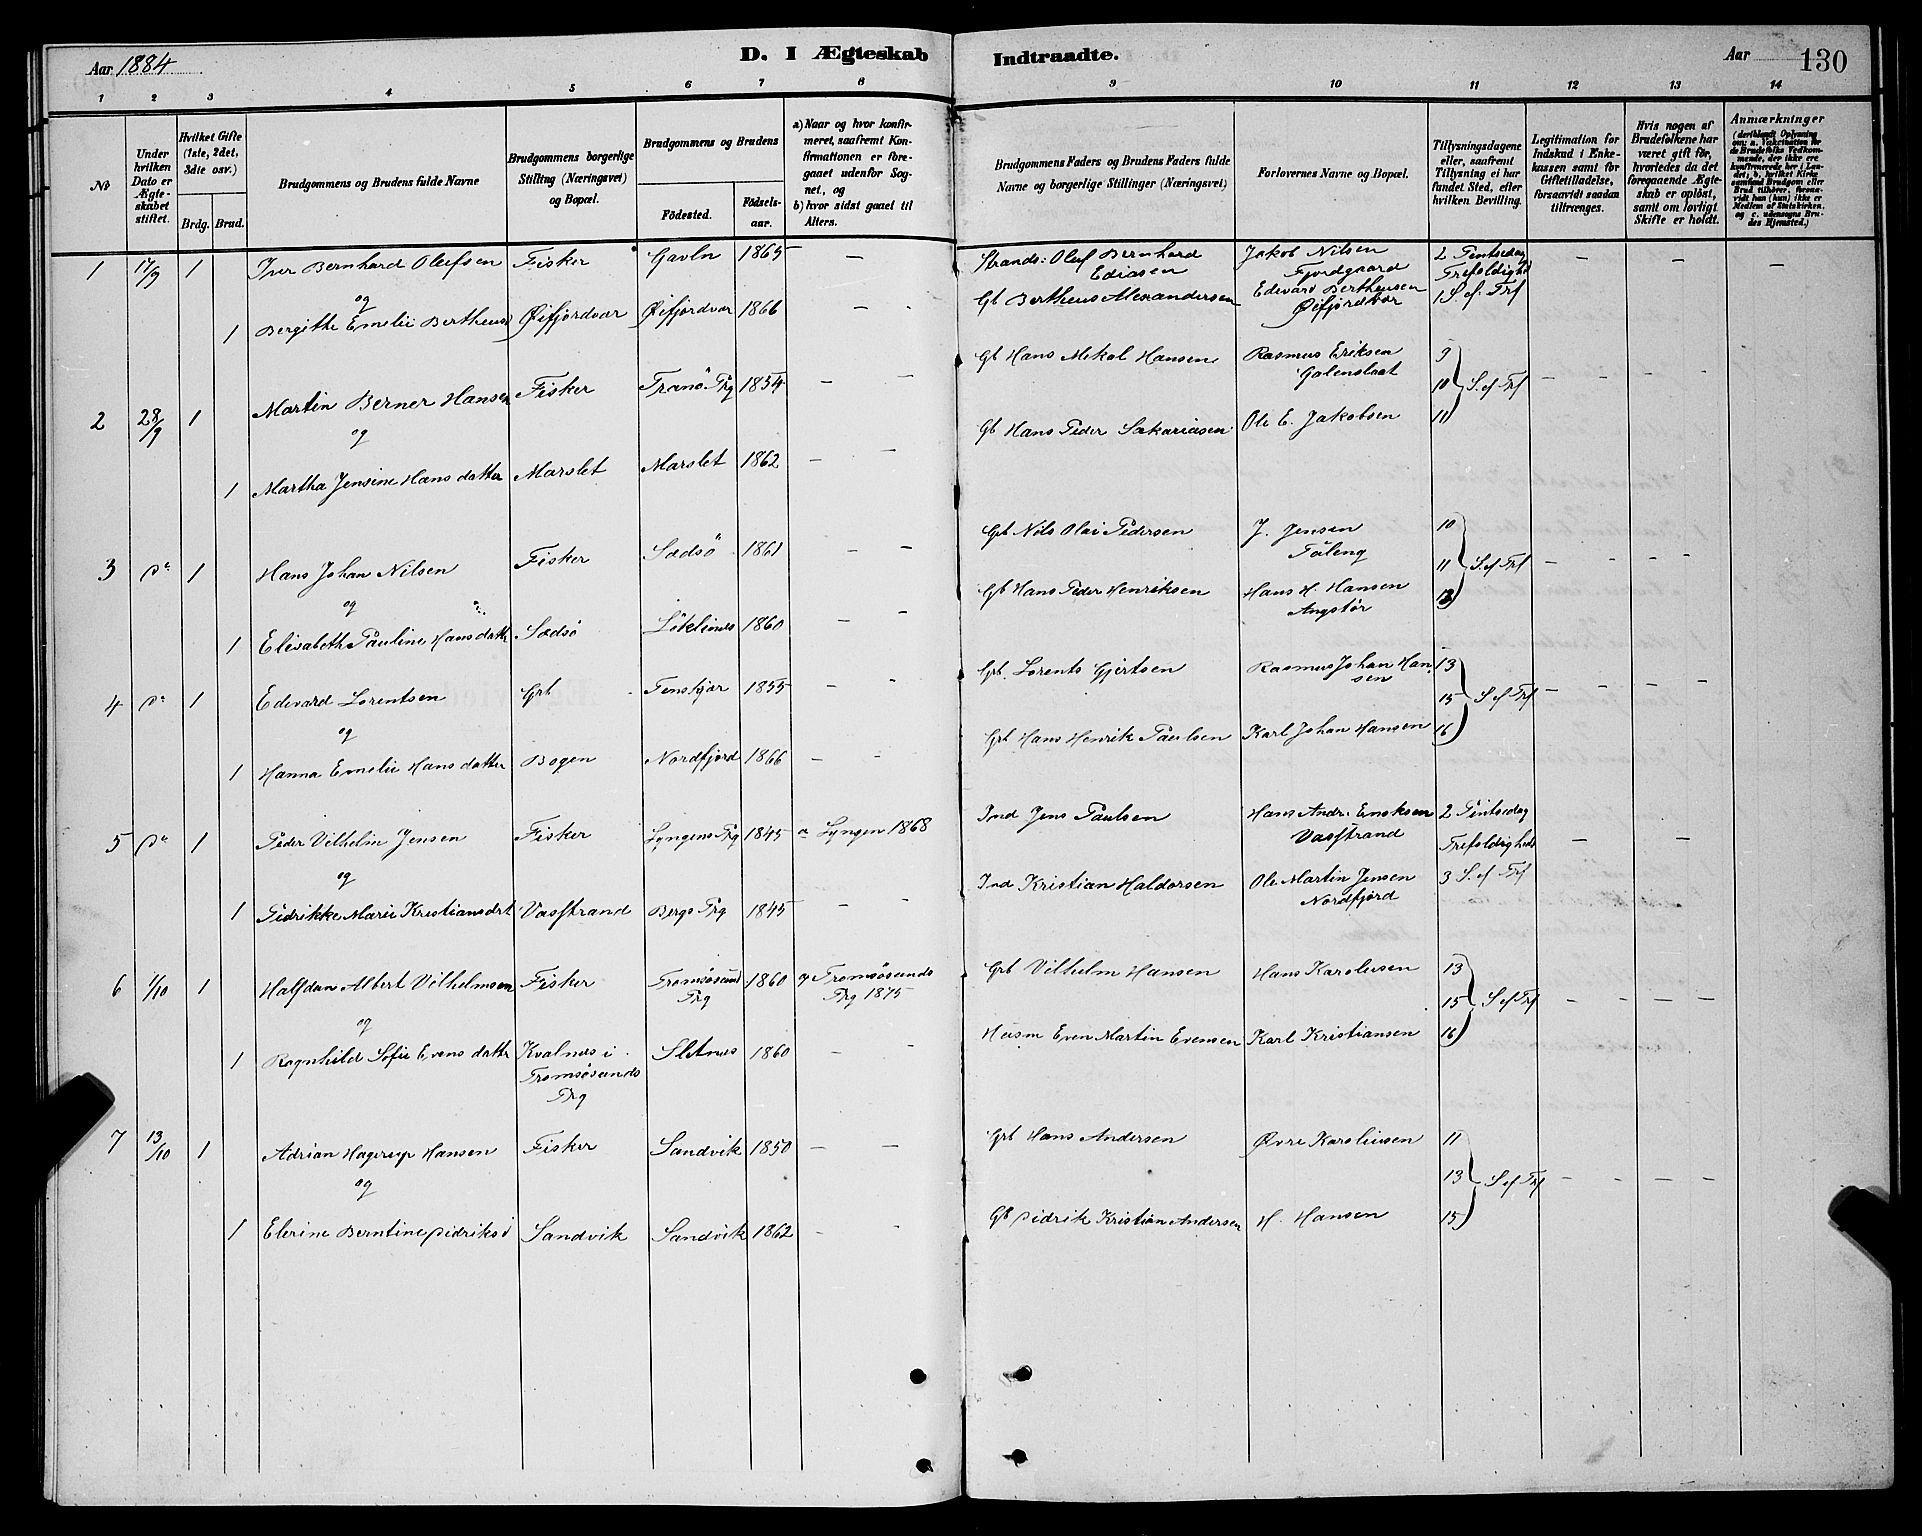 Aar 1884
D. I Ægteskab
Indtraadte.
Aar
130
1 2 3 4 5 6 7 8 9 10 11 12 13 14
No
Under hvilken Dato er Ægteskabet stiftet.
Hvilket Gifte (1ste, 2det, 3die osv.)
Brdg. Brud.
Brudgommens og Brudens fulde Navne
Brudgommens borgerlige Stilling (Næringsvei) og Bopæl.
Brudgommens og Brudens
Födested.
Födselsaar.
a) Naar og hvor konfirmeret, saafremt Konfirmationen er foregaaet udenfor Sognet, og
b) hvor sidst gaaet til Alters.
Brudgommens Faders og Brudens Faders fulde Navne og borgerlige Stillinger (Næringsvei)
Forlovernes Navne og Bopæl.
Tillysningsdagene eller, saafremt Tillysning ei har fundet Sted, efter hvilken Bevilling.
Legitimation for Indskud i Enkekassen samt for Giftetilladelse, forsaavidt saadan tiltrænges.
Hvis nogen af Brudefolkene har været gift før, hvorledes da det foregaaende Ægteskab er oplöst, samt om lovligt Skifte er holdt.
Anmærkninger
(deriblandt Oplysning om: a. Vakcination for de Brudefolks Vedkommende, der ikke ere konfirmerede her i Landet; b. hvilket Kirkesamfund Brudgom eller Brud tilhörer, forsaavidt han (hun) ikke er Medlem af Statskirken, og c. udensogns Brudes Hjemsted.)
1 17/9 1 Iver Bernhard Olufsen Fisker Gavln 1865 — — Strands: Oluf Bernhard Jakob Nilsen 2 Pintsedag — — —
Ediasen Fjordgaard Trefoldighed
og Gb Bertheus Alexandersen Edevard Bertheusen 1 S. ef. Trf
1 Bergithe Emelie Bertheusd Øifjordvær Øifjordvær 1866 — Øifjordvær
2 28/9 1 Martin Berner Hansen Fisker Tranö Prg 1854 — — Gb Hans Mikal Hansen Rasmus Eriksen 9
10 S. ef Trf — — — —
og Gb Hans Peder Sakariasen Ole E. Jakobsen 11
1 Martha Jensine Hansdatter Marslet Marslet 1862 — —
3 do 1 Hans Johan Nilsen Fisker Sædsö 1861 — — Grb Nils Olai Pedersen J. Jensen 10
11 S. ef Trf — — — —
og Gb Hans Peder Henriksen Hans H. Hansen 12
1 Elisabeth Pauline Hansdatt Sædsö 1860 — — Angstör
4 do 1 Edevard Lorentsen Grb Tenskjær 1855 — — Grb. Lorents Gjertsen Rasmus Johan Han- 13
sen 15 S. ef Trf — — — —
og Grb Hans Henrik Paulsen Karl Johan Hansen 16
1 Hanna Emelie Hansdatter Bogen Nordfjord 1866 — —
5 do 1 Peder Vilhelm Jensen Fisker Lyngens Prg 1845 a Lyngen 1868 Ind Jens Paulsen Hans Andr. 2 Pintsedag
Vasstrand Trefoldigheds — — —
og Ind Kristian Haldorsen Ole Martin Jensen 3 S. ef Trf
1 Pedrikke Marie Kristiansdtt Vasstrand Bergs Prg 1845 — — Nordfjord
6 1/10 1 Halfdan Albert Vilhelmsen Fisker Tromsösund 1860 a Tromsösunds Grb Vilhelm Hansen Hans Karolusen 13
Prg Prg 1875 15 S ef Trf — — — —
og Husm Even Martin Evensen Karl Kristiansen 16
1 Ragnhild Sofie Evensdatter Kvalnes i Sletnes 1860 — —
Tromsösunds
Prg
7 13/10 1 Adrian Hagerup Hansen Fisker Sandvik 1850 — — Grb Hans Andersen Øvre Karoliusen 11
og 13 S ef Trf — — — —
1 Elerine Berntine Didriksd Sandvik Sandvik 1862 — — Gb Didrik Kristian Andersen H. Hansen 15